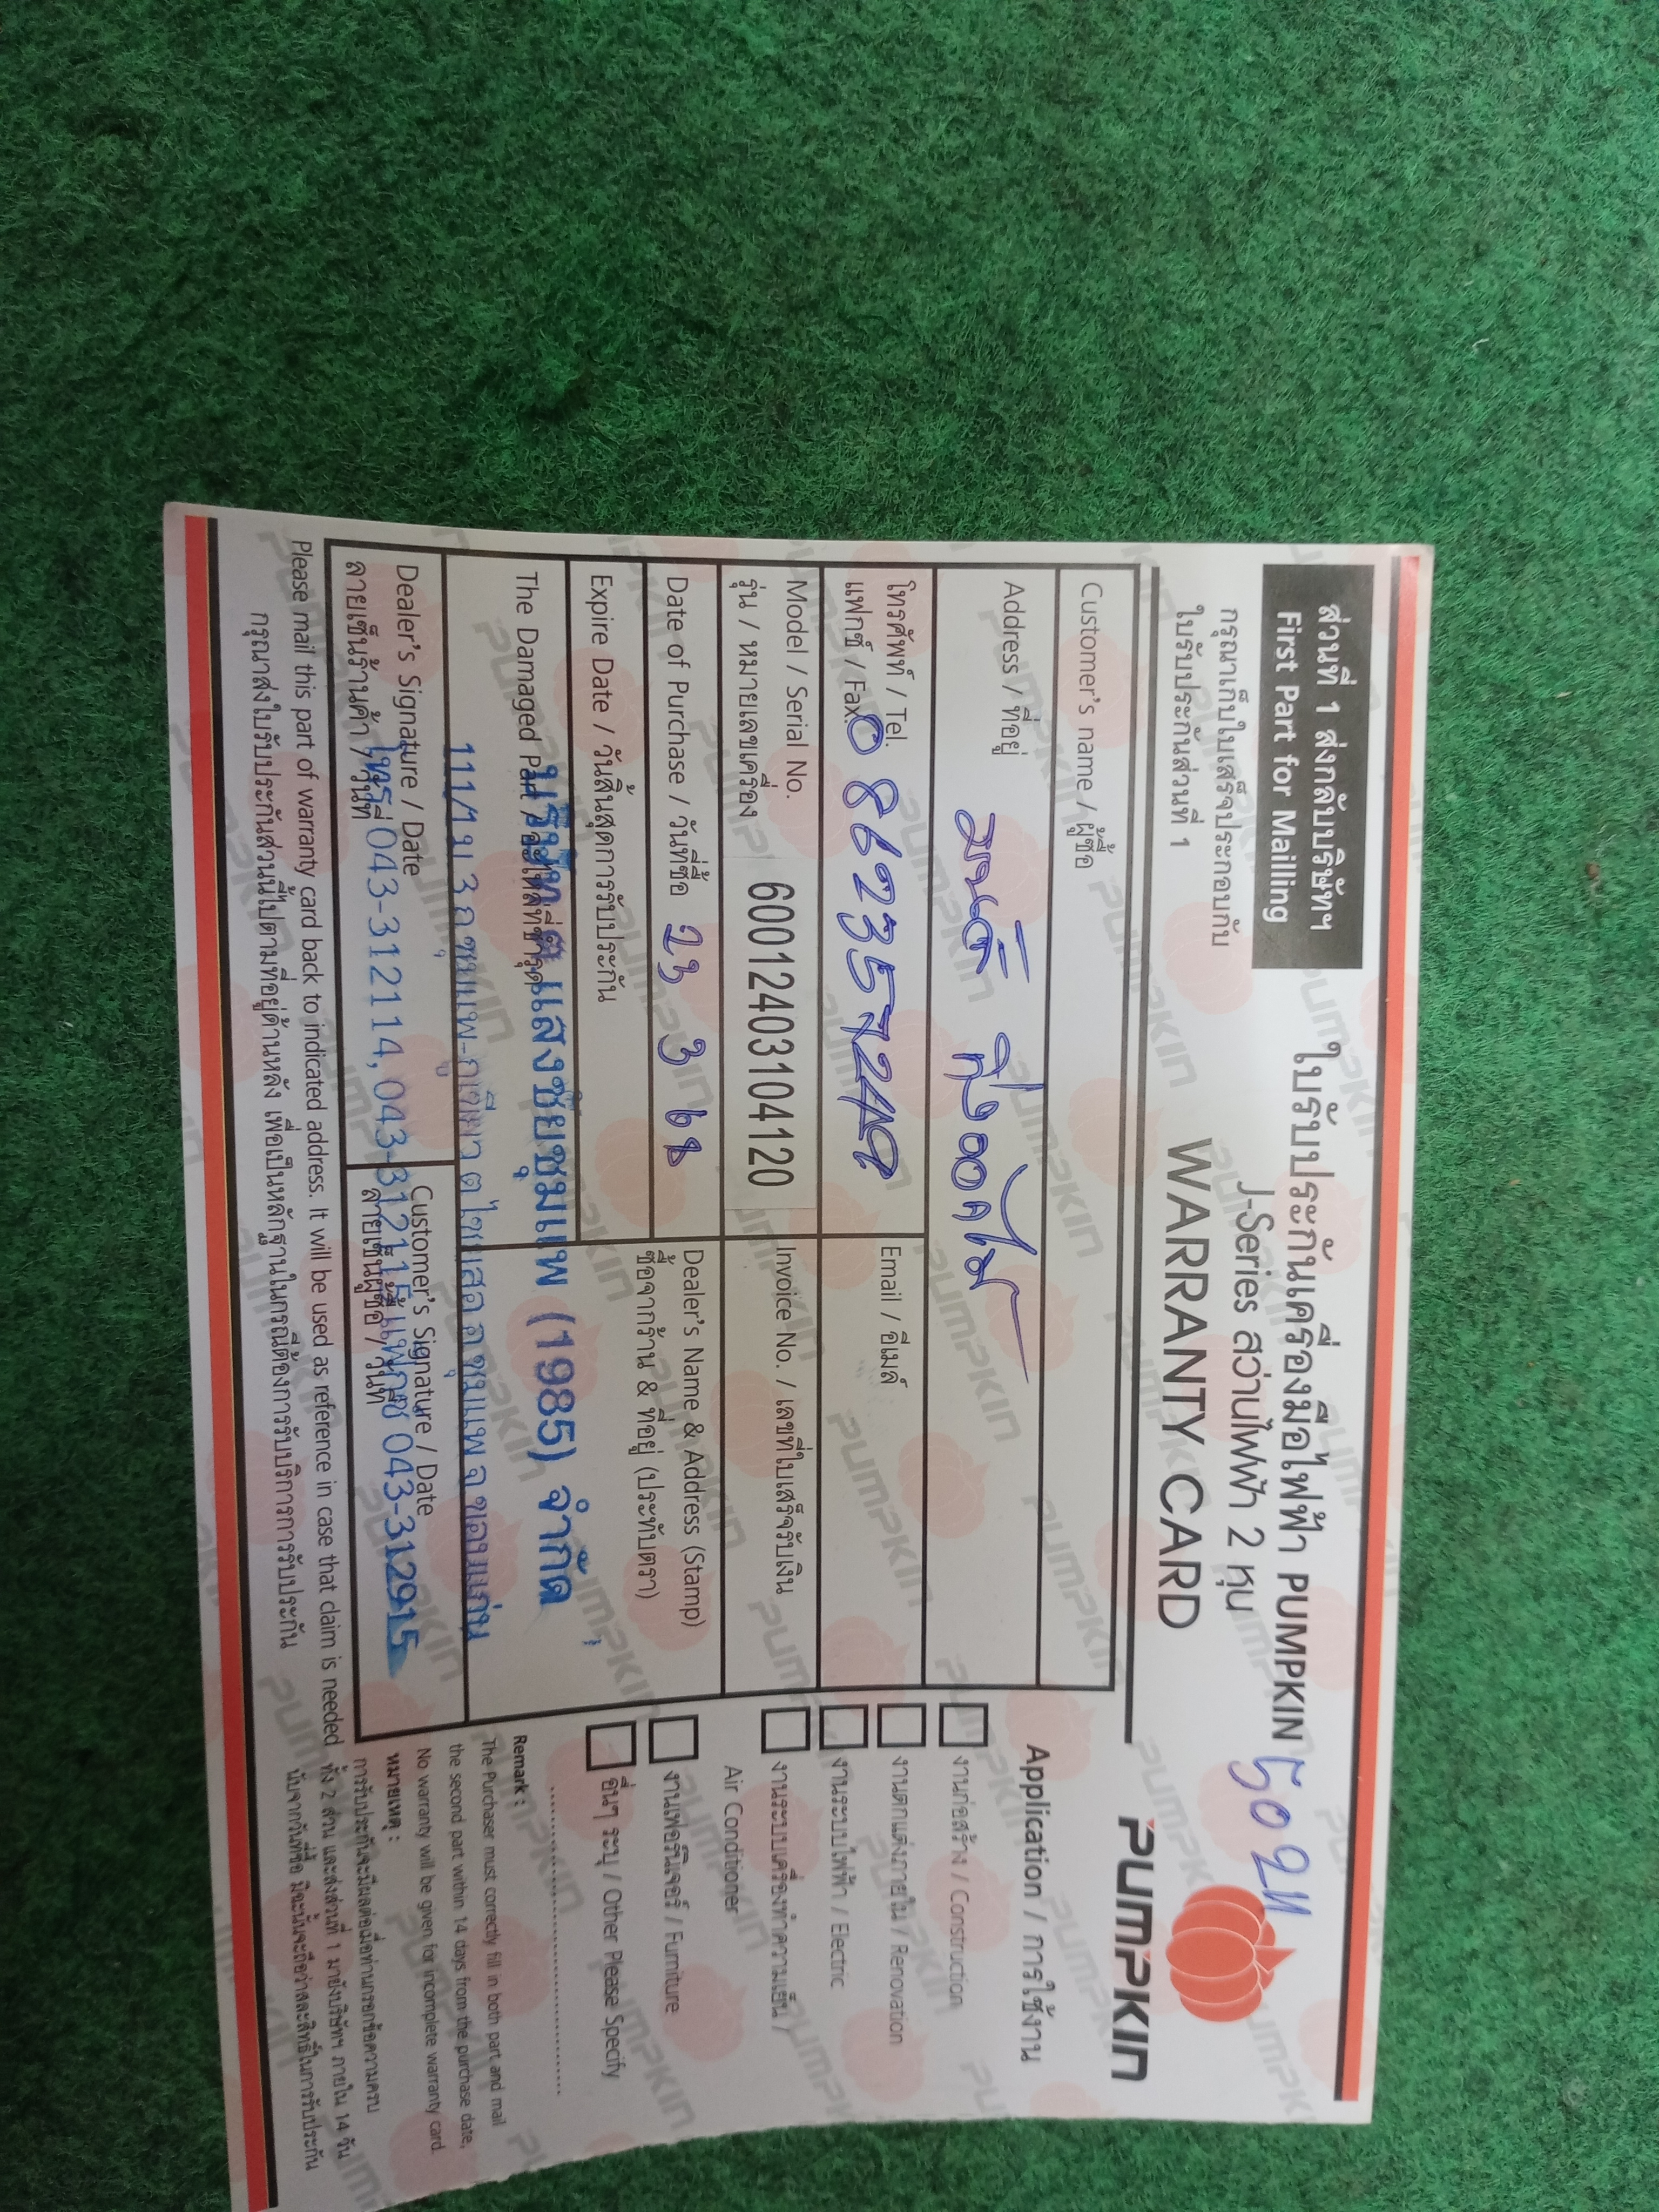 ส่วนที่ 1 ส่งกลับบริษัทฯ
First Part for Mailling
กรุณาเก็บใบเสร็จประกอบกับ
ใบรับประกันส่วนที่ 1
ใบรับประกันเครื่องมือไฟฟ้า PUMPKIN
J-Series สว่านไฟฟ้า 2 หุน
WARRANTY CARD
PUMPKIN
Customer's name / ผู้ซื้อ
Address / ที่อยู่
โทรศัพท์ / Tel.
แฟกซ์ / Fax.
Email / อีเมล์
Model / Serial No.
รุ่น / หมายเลขเครื่อง
60012403104120
Invoice No. / เลขที่ใบเสร็จรับเงิน
Date of Purchase / วันที่ซื้อ 23 3 68
Dealer's Name & Address (Stamp)
ชื่อจากร้าน & ที่อยู่ (ประทับตรา)
Expire Date / วันสิ้นสุดการรับประกัน
The Damaged Part / อะไหล่ที่ชำรุด
บริษัท แสงชัยชุมแพ (1985) จำกัด
111/1 ม 3 ถ ชุมแพ-ภูเขียว ต ไชยสอ อ ชุมแพ จ ขอนแก่น
โทร 043-312114, 043-312115 แฟกซ์ 043-312915
Dealer's Signature / Date
ลายเซ็นร้านค้า / วันที่
Customer's Signature / Date
ลายเซ็นผู้ซื้อ / วันที่
Please mail this part of warranty card back to indicated address. It will be used as reference in case that claim is needed
กรุณาส่งใบรับประกันส่วนนี้ไปตามที่อยู่ด้านหลัง เพื่อเป็นหลักฐานในกรณีต้องการรับบริการการรับประกัน
Application / การใช้งาน
งานก่อสร้าง / Construction
งานตกแต่งภายใน / Renovation
งานระบบไฟฟ้า / Electric
งานระบบเครื่องทำความเย็น /
Air Conditioner
งานเฟอร์นิเจอร์ / Furniture
อื่นๆ ระบุ / Other Please Specify
Remark :
The Purchaser must correctly fill in both part and mail
the second part within 14 days from the purchase date,
No warranty will be given for incomplete warranty card.
หมายเหตุ :
การรับประกันจะมีผลต่อเมื่อท่านกรอกข้อความครบ
ทั้ง 2 ส่วน และส่งส่วนที่ 1 มายังบริษัทฯ ภายใน 14 วัน
นับจากวันที่ซื้อ มิฉะนั้นจะถือว่าสละสิทธิ์ในการรับประกัน